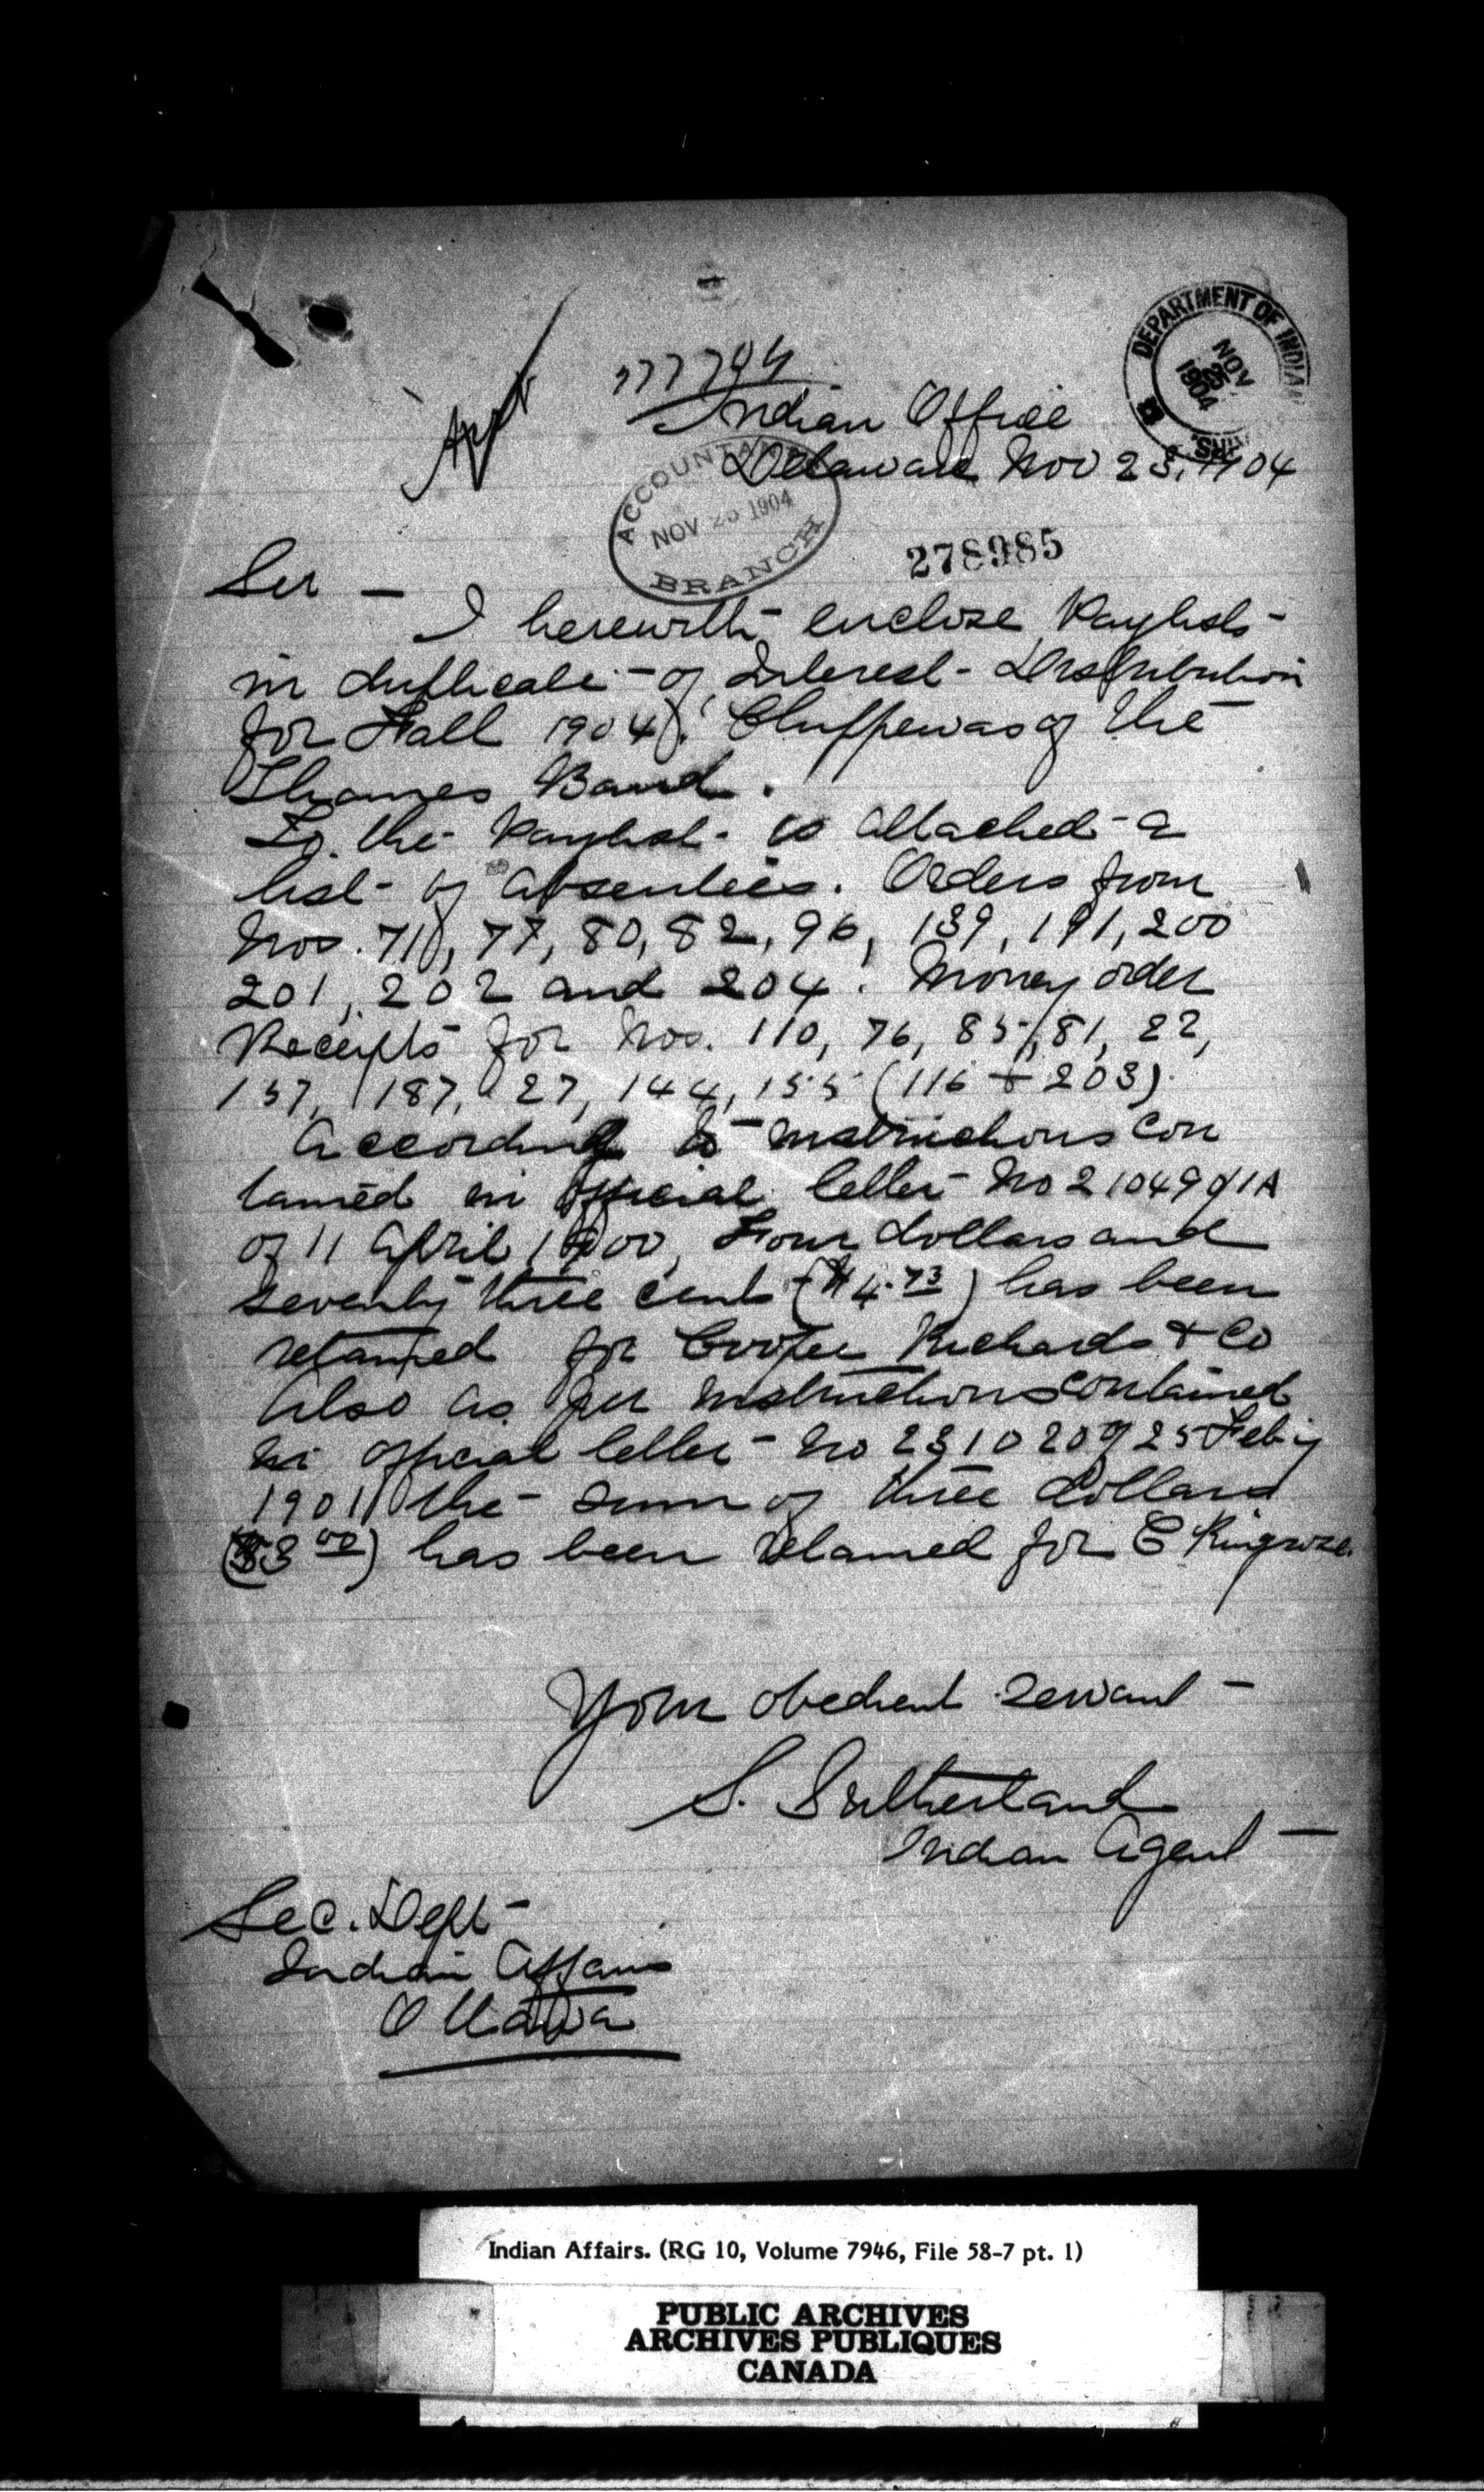 DEPARTMENT OF INDIAN AFFAIRS.
NOV
1904
277794
Indian Office
Delaware Nov 23, 1904
ACCOUNTANT
NOV 25 1904
BRANCH
278985
Sir —
I herewith enclose Paylists
in duplicate of Interest Distribution
for Fall 1904, Chippewas of the
Thames Band.
To the Paylist is attached a
list of absentees. Orders from
Nos. 71, 77, 80, 82, 96, 139, 191, 200
201, 202 and 204. Money order
Receipts for Nos. 110, 76, 85, 81, 22,
157, 187, 27, 144, 155 (116 + 203).
According to instructions con
tained in official letter No 210499/1A
of 11 April 1900, Four dollars and
seventy three cents ($4.73) has been
retained for Cooper Richards & Co
Also as per instructions contained
in official letter No 231020 of 25 Feby
1901 the sum of three dollars
($3 00) has been retained for C Ringrose.
Your obedient servant
S. Sutherland
Indian Agent —
Sec. Dept
Indian Affairs
Ottawa
Indian Affairs. (RG 10, Volume 7946, File 58-7 pt. 1)
PUBLIC ARCHIVES
ARCHIVES PUBLIQUES
CANADA